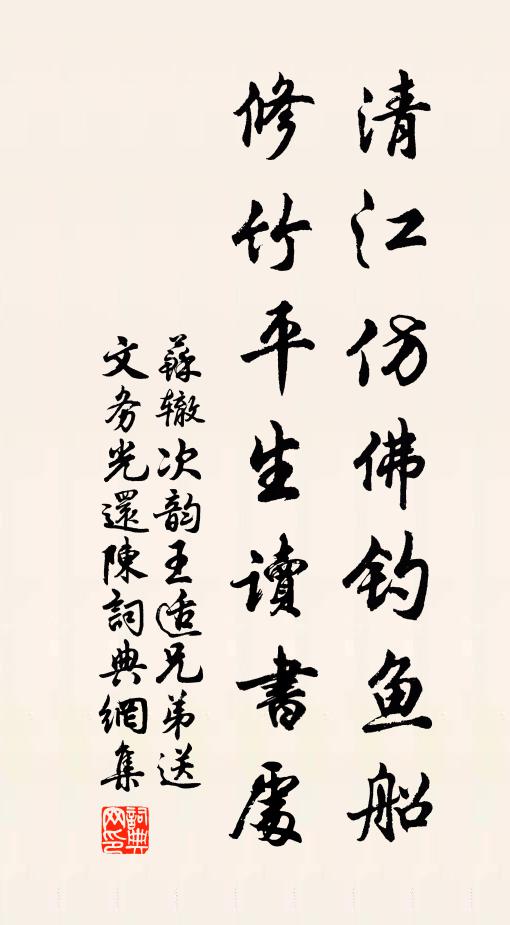 清江仿佛钓鱼船
修竹平生读書處
蘇辙次韵王适兄弟送
文务光還陳詞典網集
詞典网印